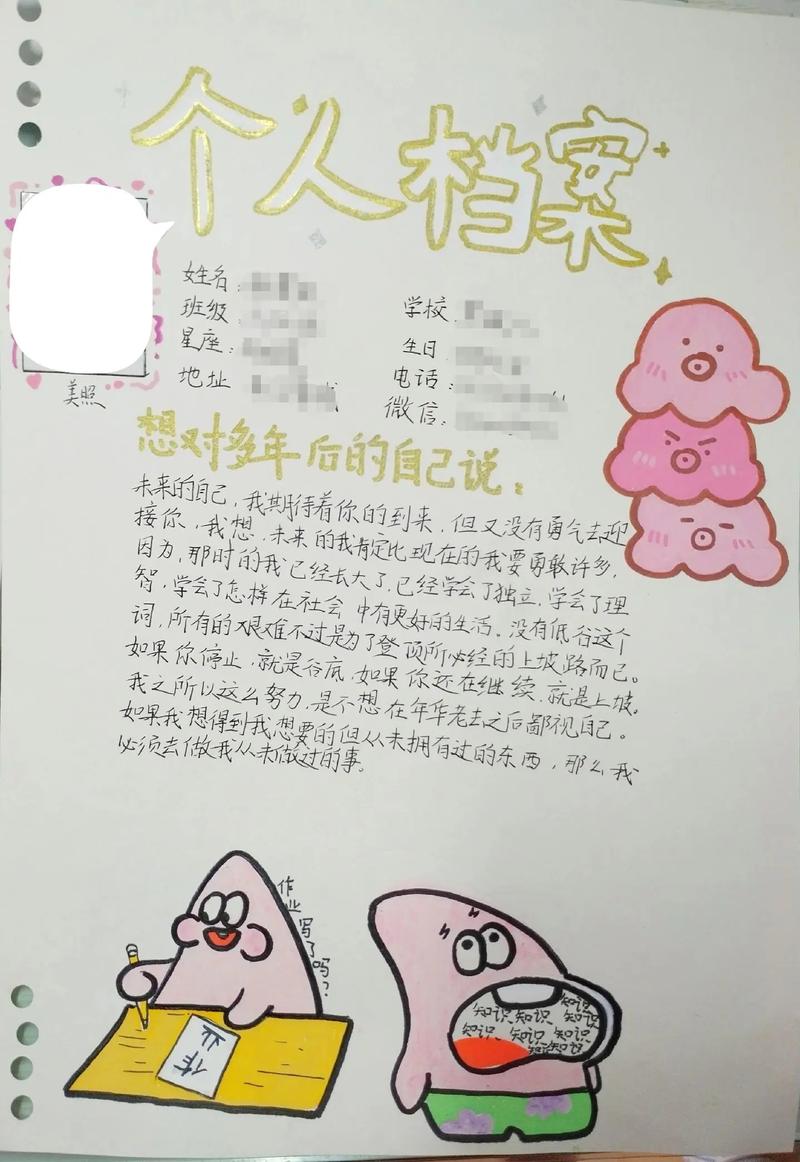 个人档案
姓名:
班级
星座:
地址
学校
生日
电话:
微信:
美照
想对多年后的自己说:
未来的自己,我期待着你的到来,但又没有勇气去迎
接你,我想,未来的我肯定比现在的我要勇敢许多,
因为,那时的我已经长大了,已经学会了独立,学会了理
智,学会了怎样在社会中有更好的生活。没有低谷这个
词,所有的艰难不过是为了登顶所必经的上坡路而已。
如果你停止,就是谷底,如果你还在继续,就是上坡。
我之所以这么努力,是不想在年华老去之后鄙视自己。
如果我想得到我想要的但从未拥有过的东西,那么我
必须去做我从未做过的事。
作业写了吗?
作业
知识
知识 知识 知识
知识 知识 知识
知识 知识